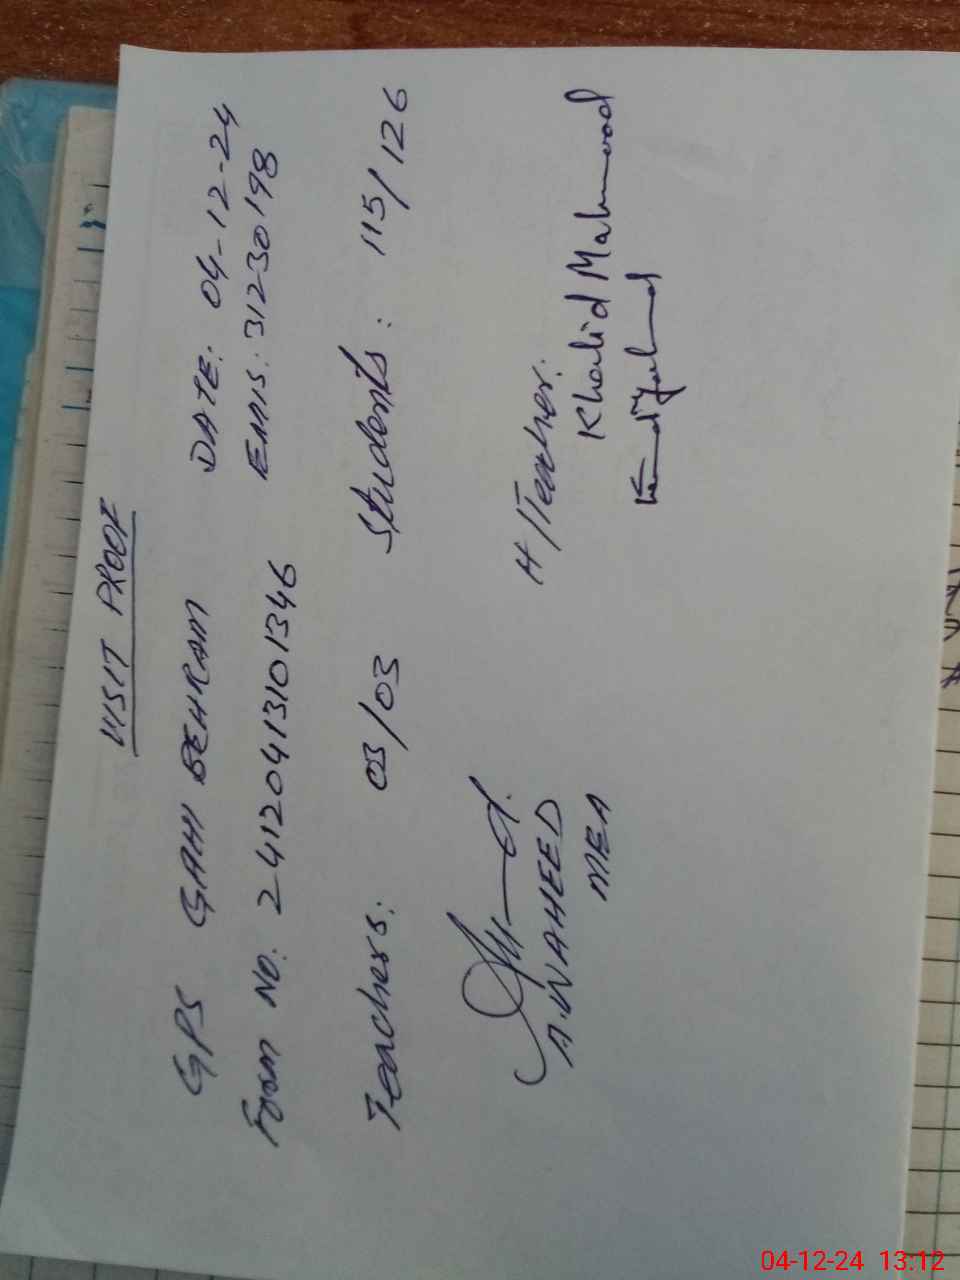 VISIT PROOF
GPS GAHI BEHRAM DATE: 04-12-24
Form No: 24120413101346 EMIS: 31230198
Teachers: 03/03 Students: 115/126
H/Teacher:
A.WAHEED Khalid Mahmood
MEA
04-12-24 13:12